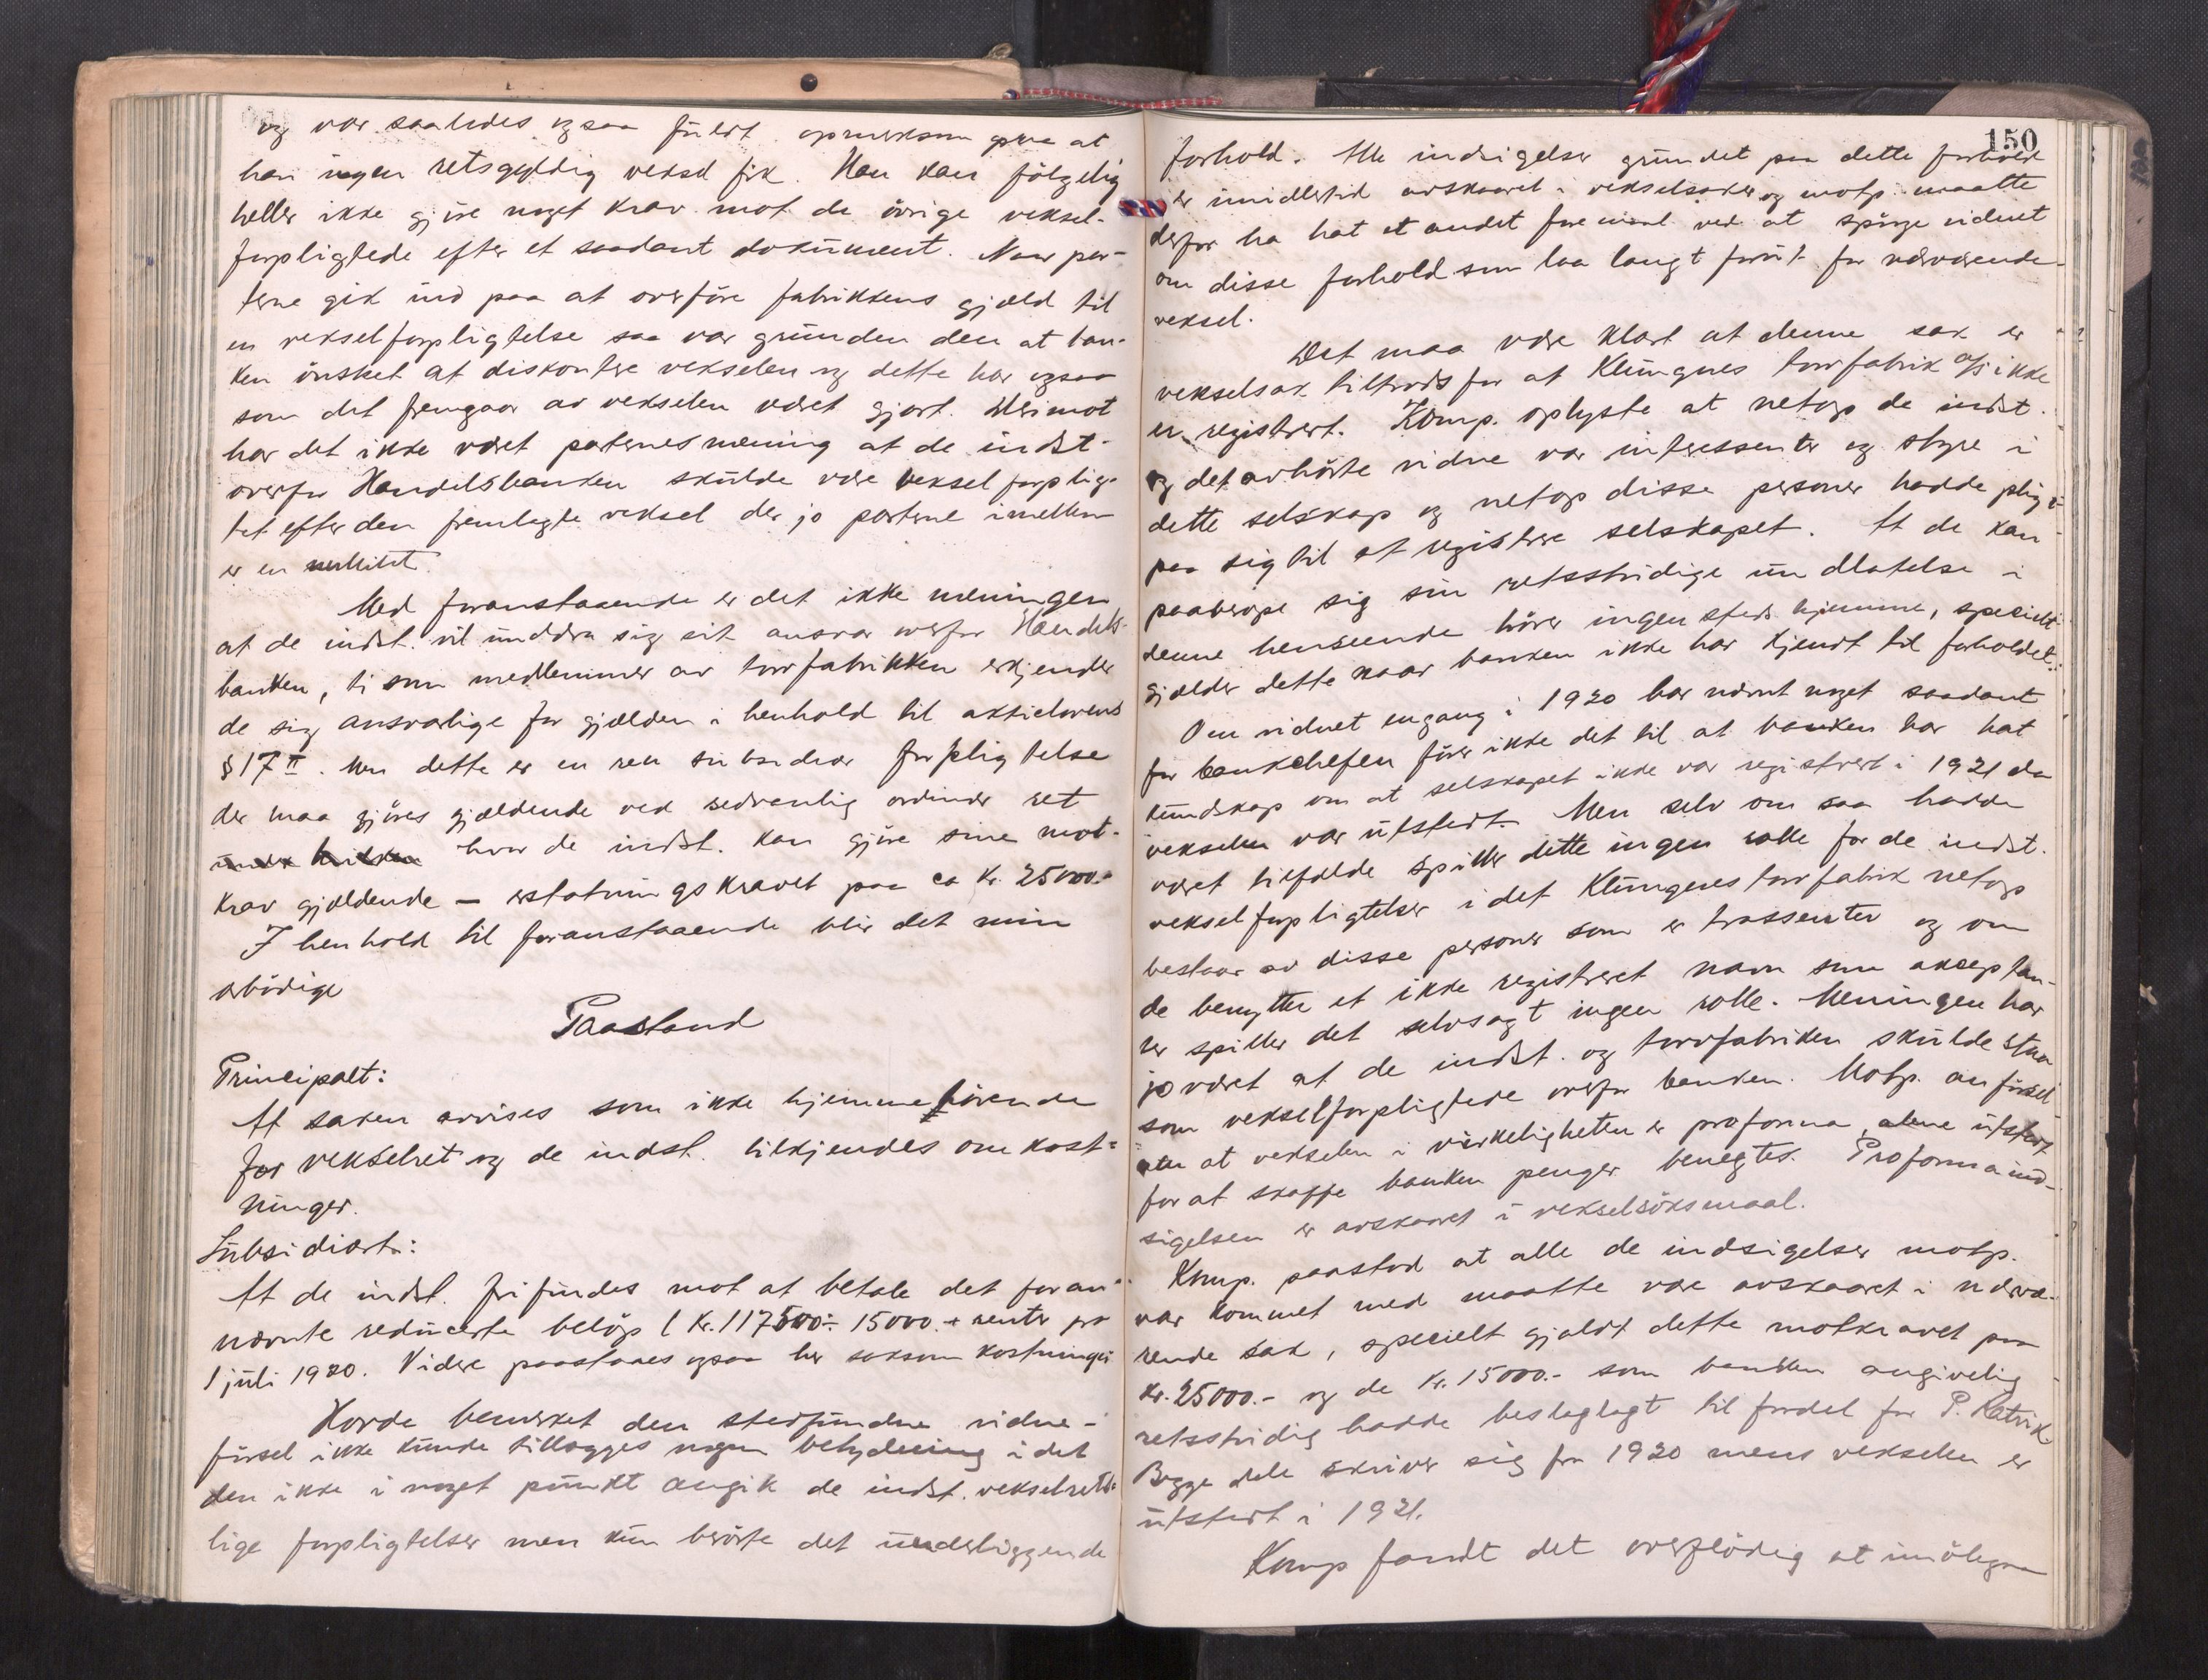 og var saaledes ogsaa fuldt opmerksom paa at
han ingen retsgyldig veksel fik. Han kan følgelig
heller ikke gjøre noget krav mot de øvrige veksel-
forpligtede efter et saadant dokument. Naar par-
terne gik ind paa at overføre fabrikkens gjæld til
en vekselforpligtelse saa var grunden den at ban-
ken ønsket at diskontere vekselen og dette har ogsaa
som det fremgaar av vekselen været gjort. Derimot
har det ikke været parternes mening at de indst.
overfor Handelsbanken skulde være vekselforplig-
tet efter den fremlagte veksel der jo parterne imellem
er en nullitet.
Med foranstaaende er det ikke meningen
at de indst. vil unddra sig sit ansvar overfor Handels-
banken, ti som medlemmer av torvfabrikken erkjender
de sig ansvarlige for gjælden i henhold til aktielovens
§ 17 II. Men dette er en ren subsidiær forpligtelse
der maa gjøres gjældende ved sedvanlig ordinær ret
under hvilken hvor de indst. kan gjøre sine mot-
krav gjældende — erstatningskravet paa ca kr. 25000.-
I henhold til foranstaaende blir det min
ærbødige
Paastand
Principalt:
At saken avvises som ikke hjemmehørende
for vekselret og de indst. tilkjendes omkost-
ninger.
Subsidiært:
At de indst. frifindes mot at betale det foran
nævnte reducerte beløp (kr. 117500 ÷ 15000.+ renter fra
1 juli 1920. Videre paastaaes ogsaa her saksomkostninger
Horde bemerket den stedfundne vidne-
førsel ikke kunde tillægges nogen betydning idet
den ikke i noget punkt angik de indst. vekselrets-
lige forpligtelser men kun berørte det underliggende
150
forhold. Alle indsigelser grundet paa dette forhold
er imidlertid avskaaret i vekselsaker og motp. maatte
derfor ha hat et andet formaal ved at spørge vidnet
om disse forhold som laa langt forut for nærværende
veksel.
Det maa være klart at denne sak er
vekselsak tiltrods for at Klungnes torvfabrik a/s ikke
er registrert. Komp. oplyste at netop de indst.
og det avhørte vidne var interessenter og styre i
dette selskap og netop disse personer hadde pligt
paa sig til at registrere selskapet. At de kan
paaberope sig sin retsstridige undlatelse i
denne henseende hører ingen steds hjemme, specielt
gjælder dette naar banken ikke har kjendt til forholdet.
Om vidnet engang i 1920 har nævnt noget saadant
for bankchefen fører ikke det til at banken har hat
kundskap om at selskapet ikke var registrert i 1921 da
vekselen var utstedt. Men selv om saa hadde
været tilfælde spiller dette ingen rolle for de indst.
vekselforpligtelser idet Klungnes torvfabrik netop
bestaar av disse personer som er trassenter og om
de benytter et ikke registreret navn som akceptan-
ter spiller det selvsagt ingen rolle. Meningen har
jo været at de indst. og torvfabriken skulde staa
som vekselforpligtede overfor banken. Motp. anførsel
om at vekselen i virkeligheten er proforma, alene utstedt
for at skaffe banken penger benegtes. Proformaind-
sigelsen er avskaaret i vekselsøksmaal.
Komp. paastod at alle de indsigelser motp.
var kommet med maatte være avskaaret i nærvæ-
rende sak, specielt gjaldt dette motkravet paa
kr. 25000.- og de kr. 15000.- som banken angivelig
retsstridig hadde beslaglagt til fordel for P.
Begge dele skriver sig fra 1920 mens vekselen er
utstedt i 1921.
Komp fandt det overflødig at imøtegaa